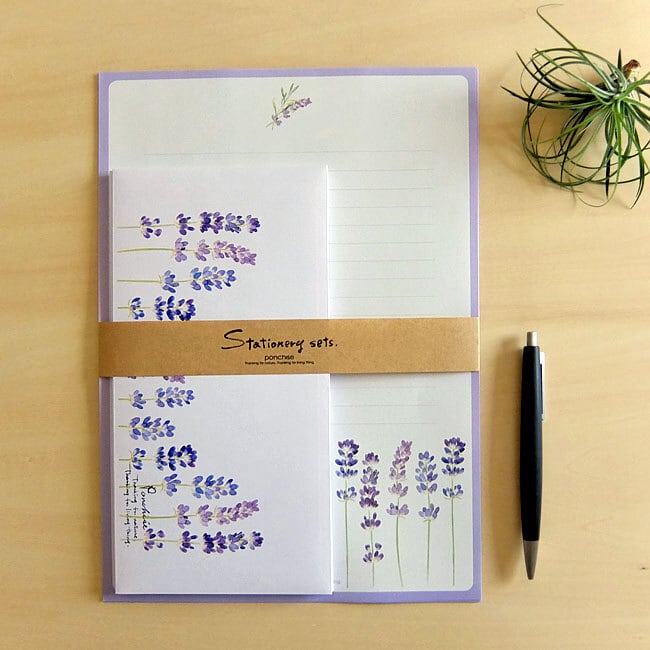 Stationery sets.
ponchise
Thanking for nature. Thanking for living thing.
Ponchise
Thanking to nature.
Thanking to living thing.